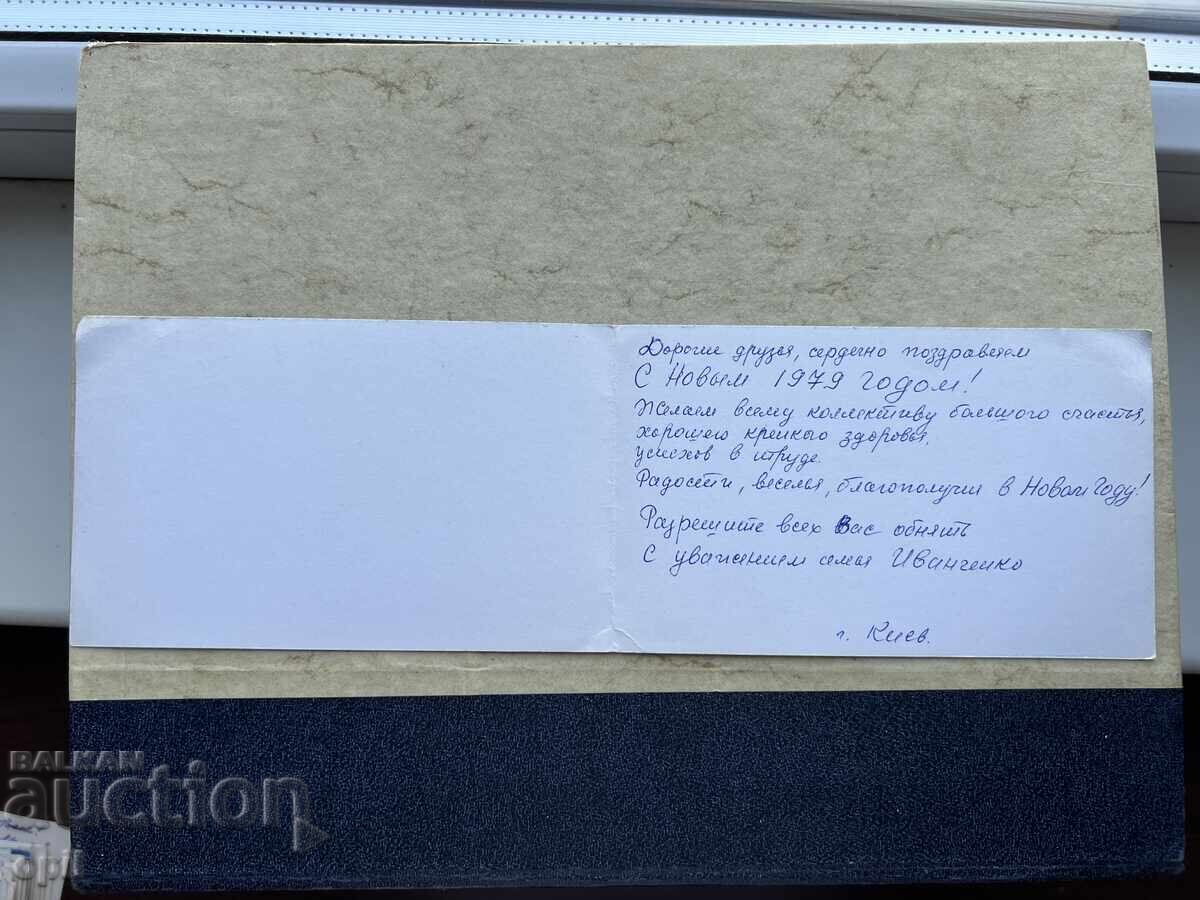 Дорогие друзья, сердечно поздравляем
С Новым 1979 годом!
Желаем всему коллективу большого счастья,
хорошего крепкого здоровья,
успехов в труде.
Радости, веселья, благополучия в Новом Году!
Разрешите всех Вас обнять
С уважением семья Иванченко
г. Киев.
BALKAN
auction
opil